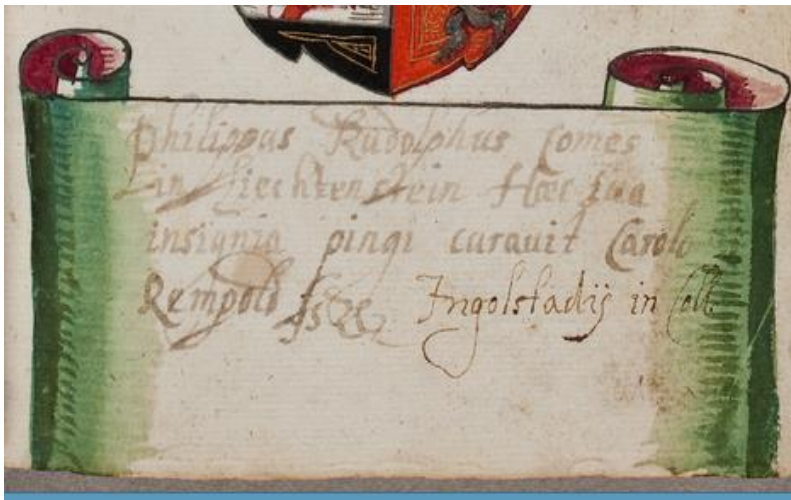 Philippus Rudolphus Comes
in Liechtenstein Hæc sua
insignia pingi curauit Carolo
Rempold Ingolstadij in Coll.